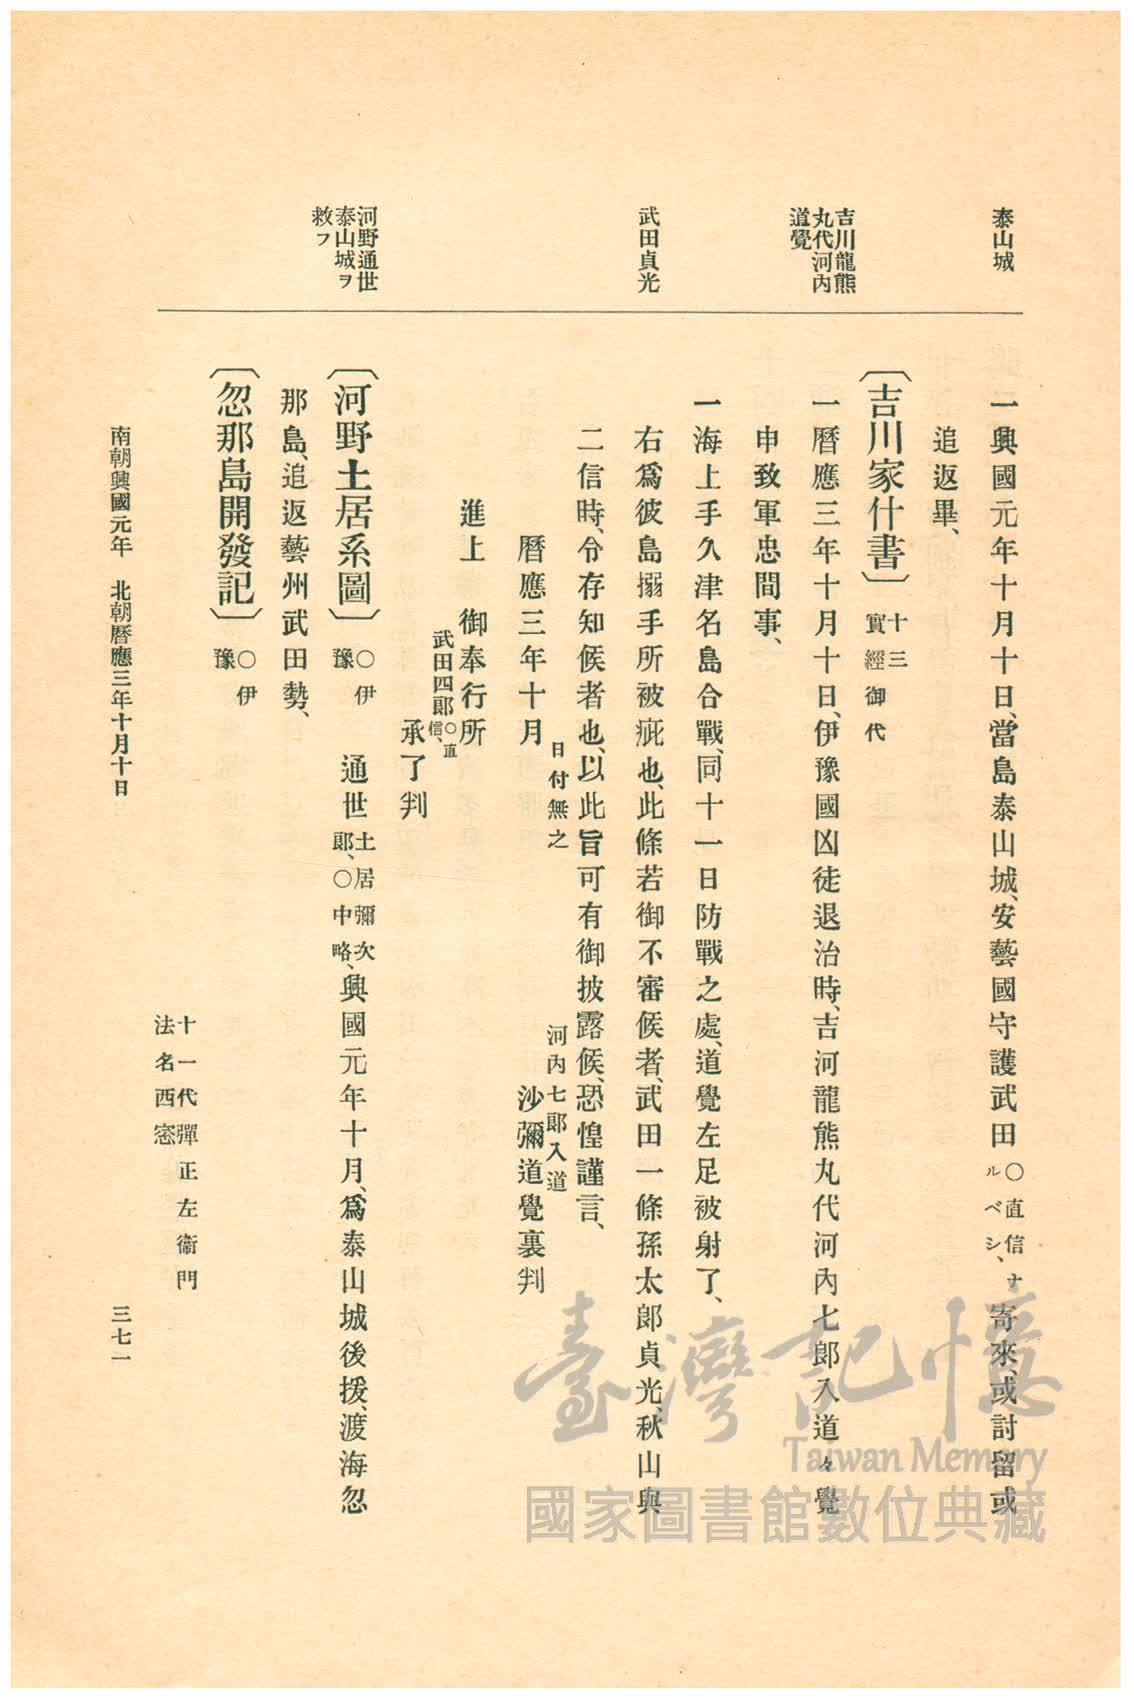 泰山城
吉川龍熊
丸代河内
道覺
武田貞光
河野通世
泰山城ヲ
救フ
一興國元年十月十日、當島泰山城、安藝國守護武田○直信ナルベシ、寄來、或討留或
追返畢、
〔吉川家什書〕十三實經御代
一曆應三年十月十日、伊豫國凶徒退治時、吉河龍熊丸代河内七郎入道々覺
申致軍忠間事、
一海上手久津名島合戰、同十一日防戰之處、道覺左足被射了、
右爲彼島搦手所被疵也、此條若御不審候者、武田一條孫太郎貞光、秋山與
二信時、令存知候者也、以此旨可有御披露候、恐惶謹言、
曆應三年十月日付無之 河内七郎入道沙彌道覺裏判
進上 御奉行所
武田四郎○直信、
承了判
〔河野土居系圖〕○伊豫 通世土居彌次郎、○中略、興國元年十月、爲泰山城後援、渡海忽
那島、追返藝州武田勢、
〔忽那島開發記〕○伊豫
十一代彈正左衞門
法名西窓
南朝興國元年 北朝曆應三年十月十日
三七一
臺灣記憶
Taiwan Memory
國家圖書館數位典藏